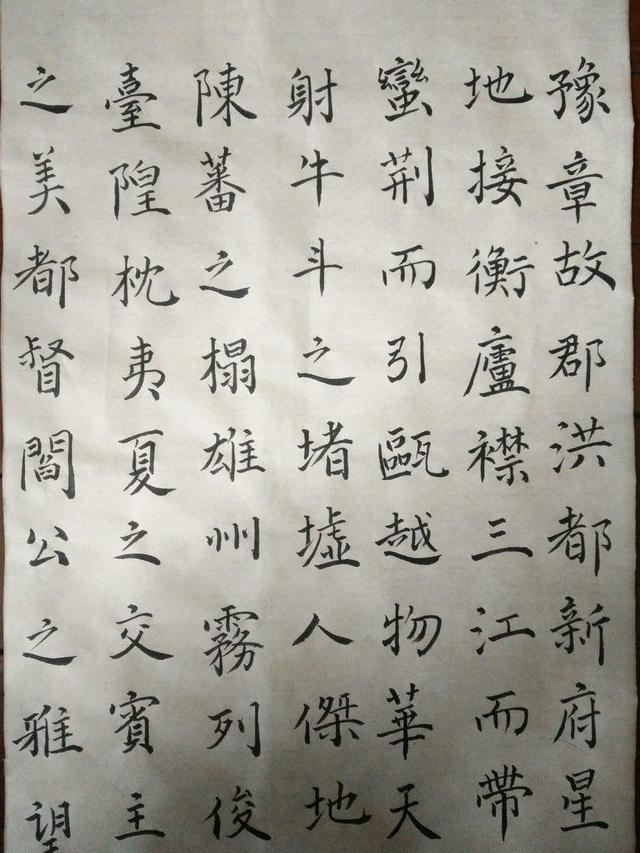 豫章故郡洪都新府星
地接衡廬襟三江而帶
蠻荆而引甌越物華天
射牛斗之堵墟人傑地
陳蕃之榻雄州霧列俊
臺隍枕夷夏之交賓主
之美都督閻公之雅望